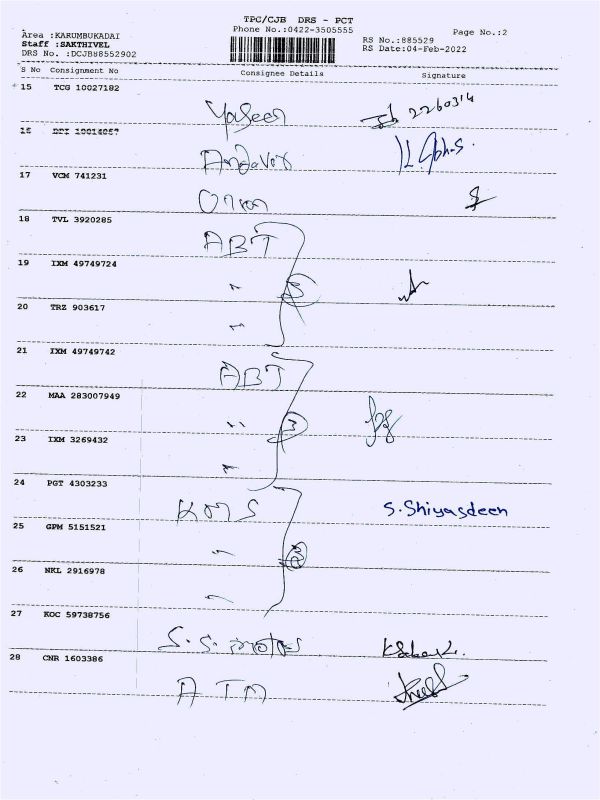 TPC/CJB DRS - PCT
Area :KARUMBUKADAI Phone No.:0422-3505555 Page No.:2
Staff :SAKTHIVEL RS No.:885529
DRS No. :DCJB88552902 RS Date:04-Feb-2022
S No Consignment No Consignee Details Signature
15 TCG 10027182
Yaseen 2260314
16
Andavar
17 VCM 741231
Orion
18 TVL 3920285
ABT
19 IXM 49749724
" 3
20 TRZ 903617
"
21 IXM 49749742
ABT
22 MAA 283007949
" 3
23 IXM 3269432
"
24 PGT 4303233
KMS S.Shiyasdeen
25 GPM 5151521
" 3
26 NKL 2916978
"
27 KOC 59738756
S.S.
28 CNR 1603386
ATM